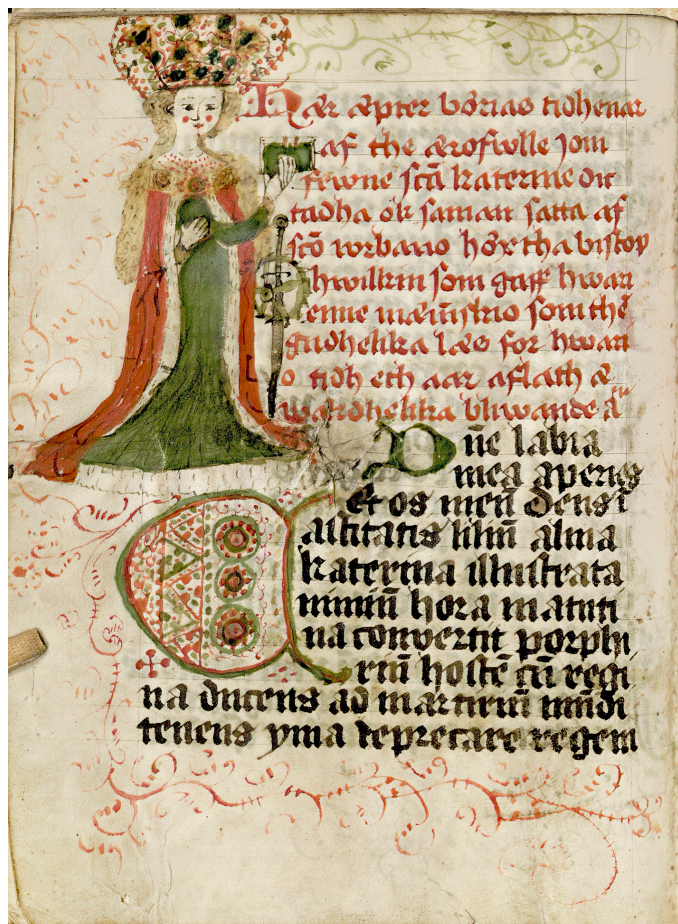 Hær æpter børias tidhenar
af the ærofwlle Jom
frwne scā katerine dic
tadha ok saman satta af
scō vrbano høxtha biscop
hwilkin som gaff hwar
enne mænīskio som thē
gudhelika læs for hwan
o tidh eth aar aflath æ
wærdhelika bliwande ā
Dn̄e labia
mea aperies
Et os meū Deus ī
Castitatis liliū alma
katerina illustrata
nimiū hora matuti
na convertit porphi
riū hostē cū regi
na ducens ad martiriū mūdi
tenens yma deprecare regem